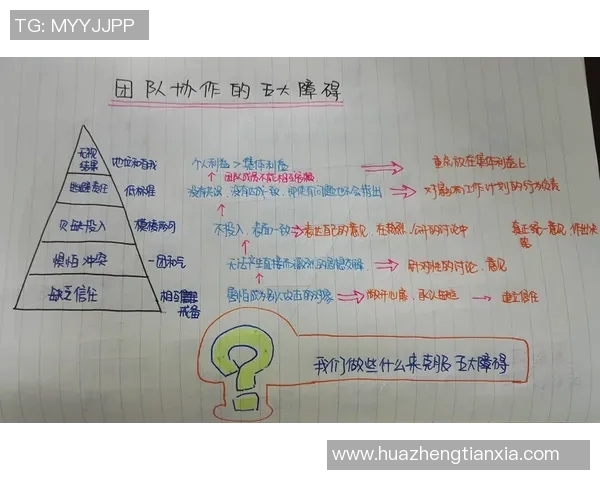 TG: MYYJJPP
团队协作的五大障碍
无视结果 地位和自我 个人利益 > 集体利益 重点放在集体利益上
团队成员不能相互
逃避责任 低标准 没有 没有达成一致, 即使有问题也不会指出 对影响工作计划的行为负责
欠缺投入 模棱两可 不投入, 表面一致 表达自己的意见, 在 公开的讨论中 真正统一意见, 作出决策
惧怕冲突 一团和气 无法产生直接而激烈的思想交锋 针对性的讨论, 意见
缺乏信任 相互 戒备 害怕成为别人攻击的对象 敞开心扉, 承认 建立信任
我们做些什么来克服五大障碍
www.huazhengtianxia.com